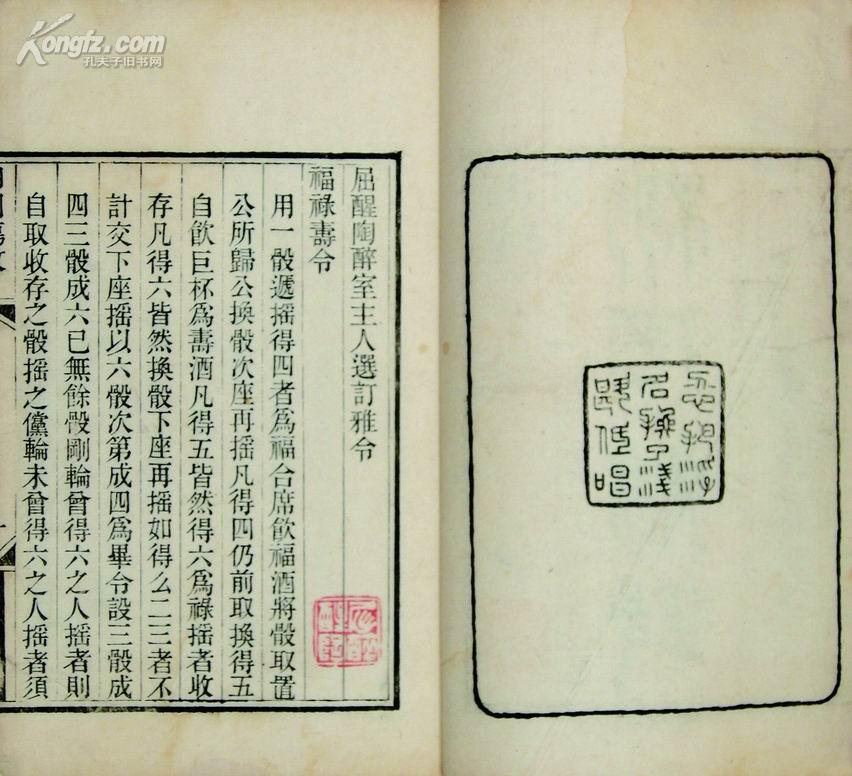 Kongfz.com
孔夫子旧书网
忍把浮
名換了淺
斟低唱
屈醒陶醉室主人選訂雅令
福祿壽令
用一骰遞搖得四者爲福合席飲福酒將骰取置
公所歸公換骰次座再搖凡得四仍前取換得五
自飲巨杯爲壽酒凡得五皆然得六爲祿搖者收
存凡得六皆然換骰下座再搖如得么二三者不
計交下座搖以六骰次第成四爲畢令設三骰成
四三骰成六已無餘骰剛輪曾得六之人搖者則
自取收存之骰搖之儻輪未曾得六之人搖者須